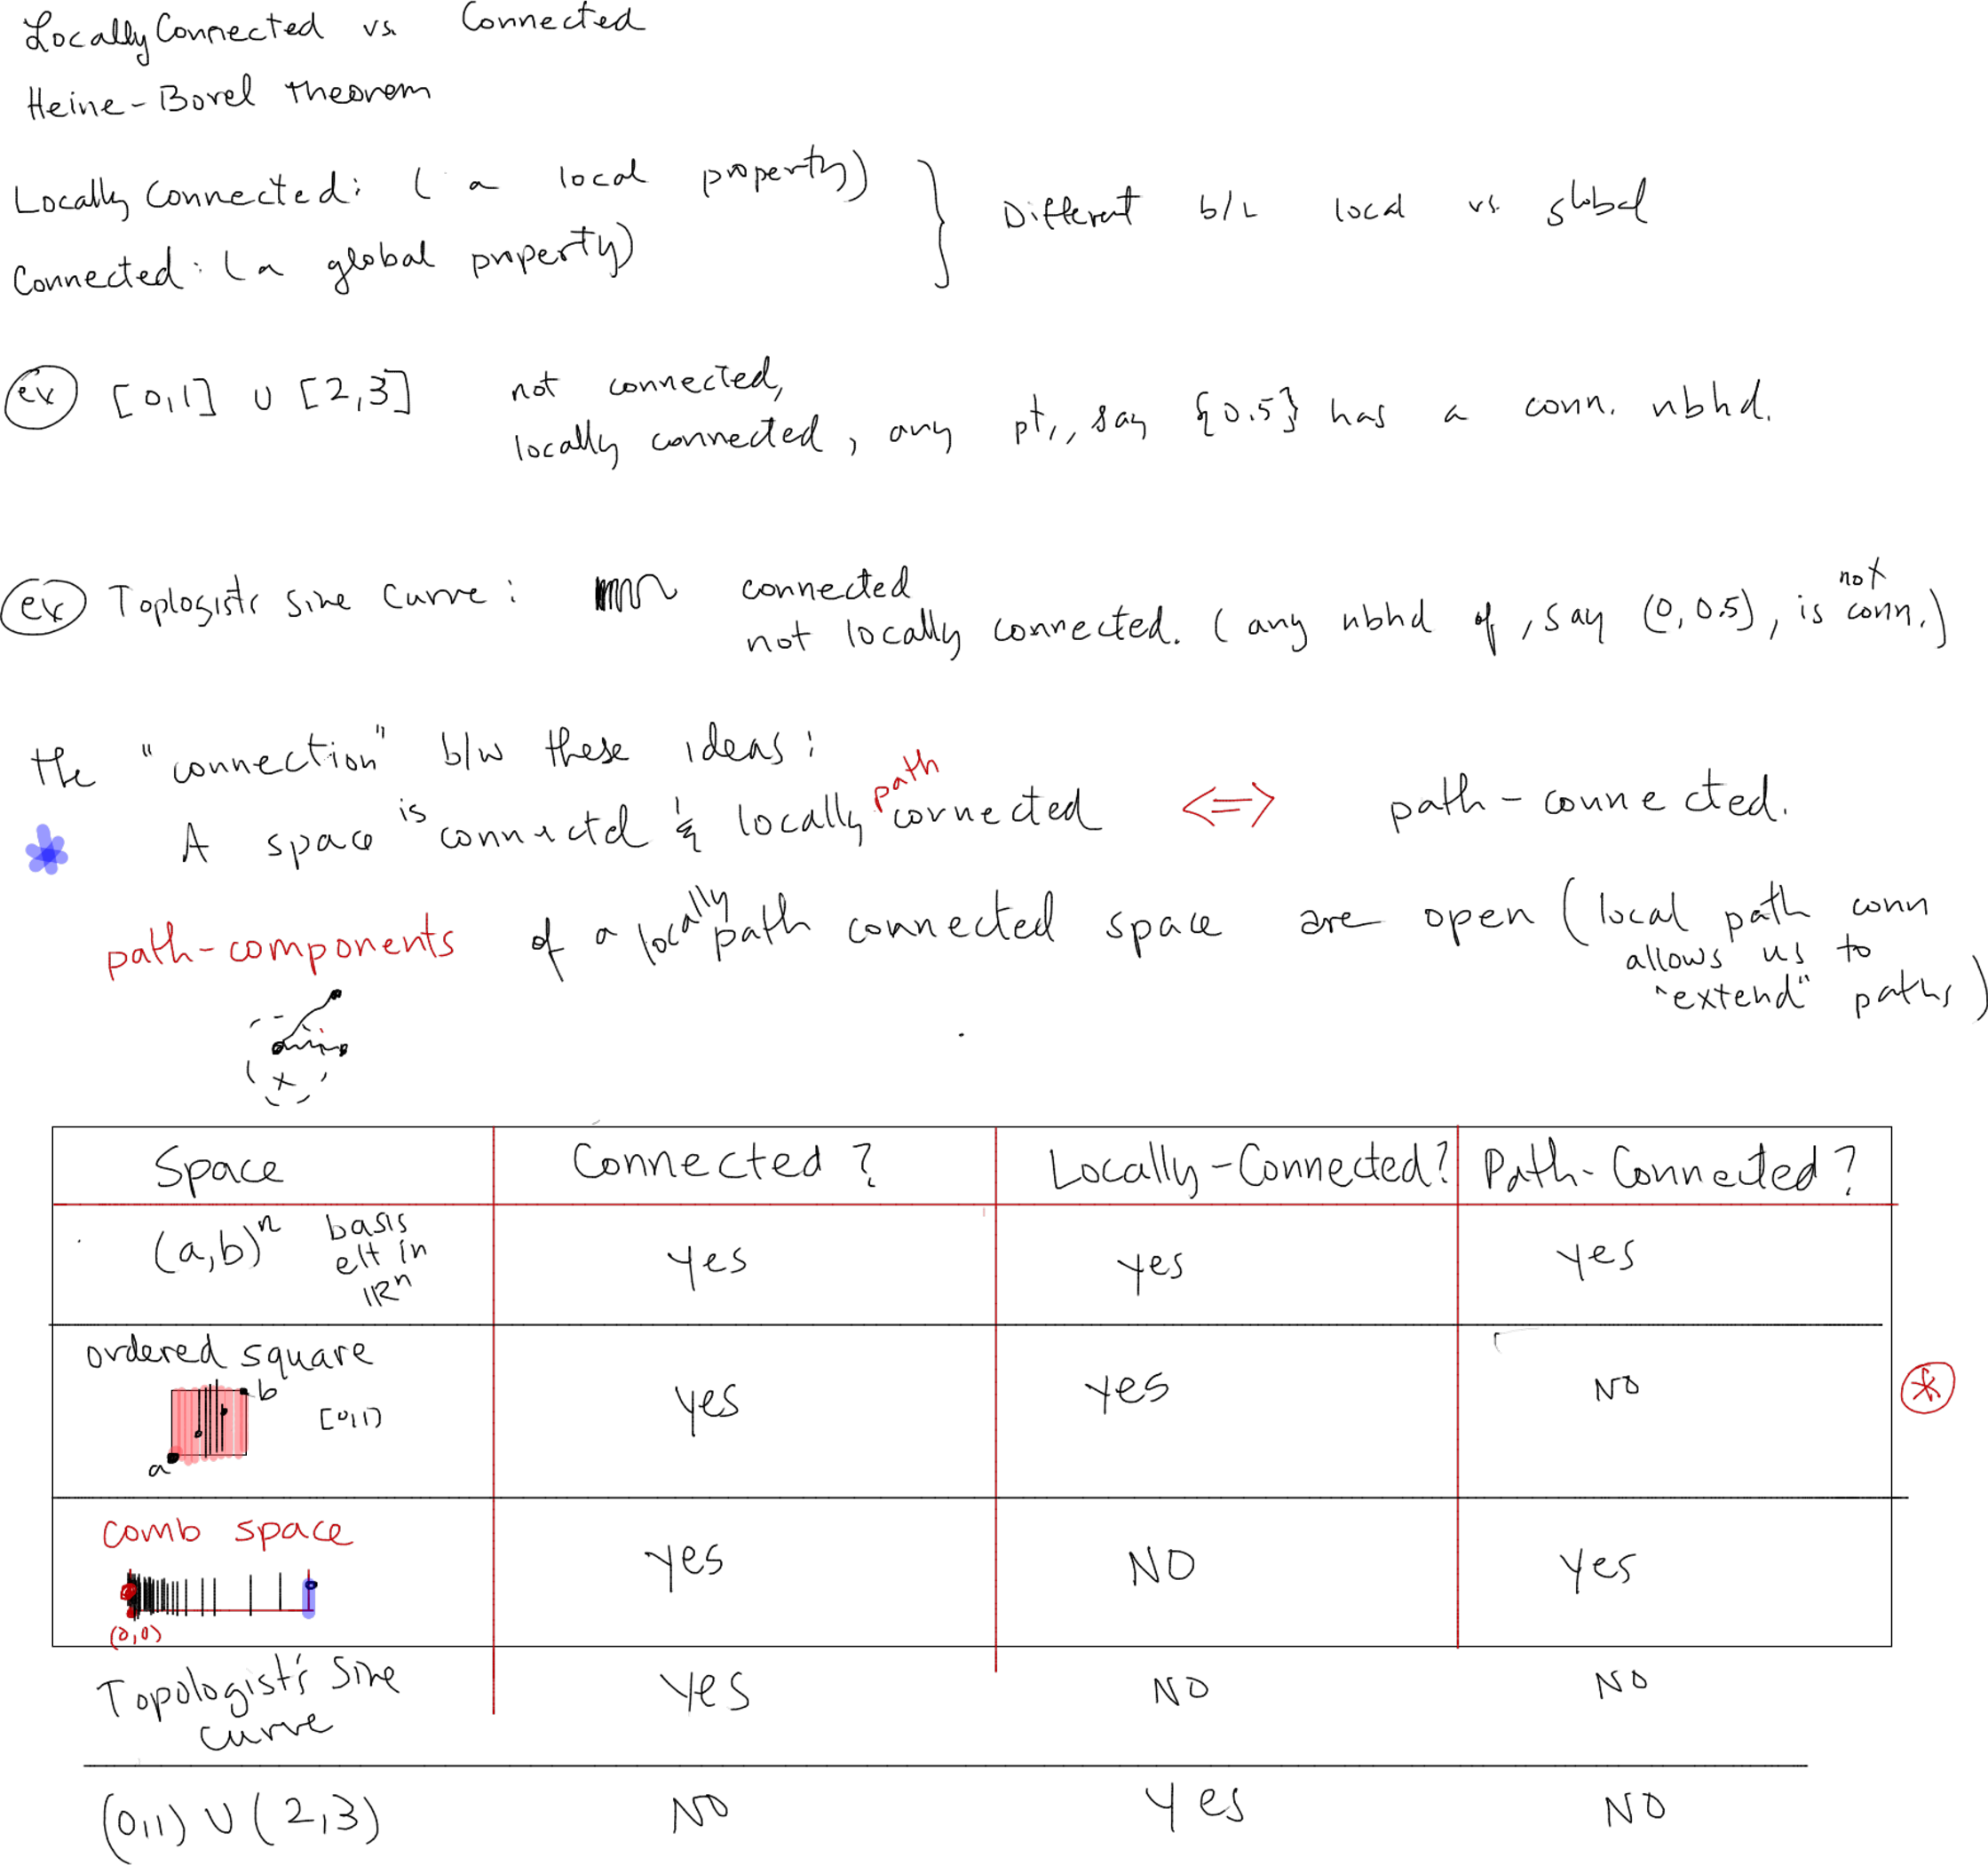 Locally Connected vs. Connected
Heine-Borel theorem
Locally Connected: ( a local property)
Connected: (a global property)
} Different b/w local vs. global
ex [0,1] ∪ [2,3] not connected,
locally connected, any pt., say {0.5} has a conn. nbhd.
ex Toplogist's sine curve: connected
not locally connected. (any nbhd of, say (0, 0.5), is not conn.)
the "connection" b/w these ideas:
A space is connected & locally path connected <=> path-connected.
path-components of a locally path connected space are open (local path conn
allows us to
"extend" paths)
x
Space Connected? Locally-Connected? Path-Connected?
(a,b)^n basis
elt in
ℝ^n
yes yes yes
ordered square
b
[0,1)
a
yes yes NO *
comb space
(0,0)
yes NO yes
Topologist's Sine
curve
yes NO NO
(0,1) ∪ (2,3) NO Yes NO